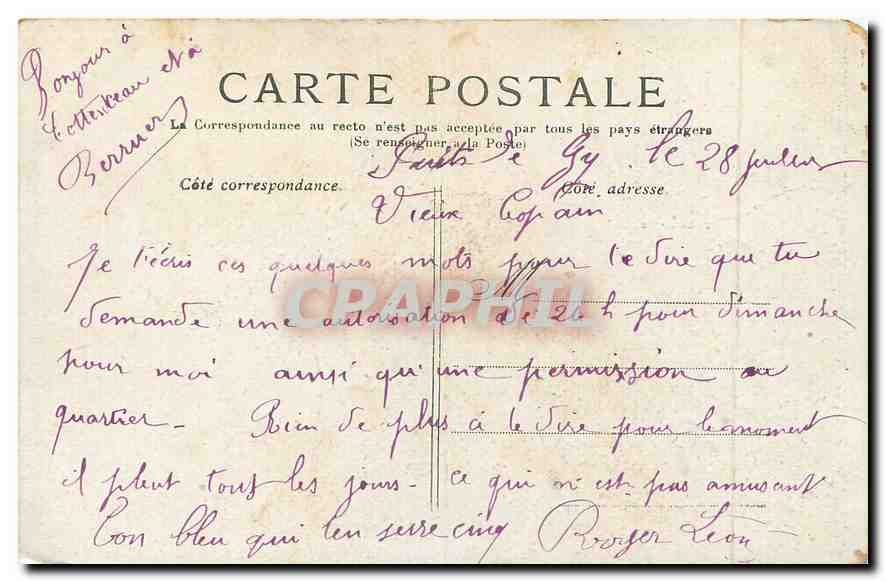 Bonjour à
et à
Berruer
CARTE POSTALE
La Correspondance au recto n'est pas acceptée par tous les pays étrangers
(Se renseigner a la Poste)
Puits de Gy le 28 juillet
Côté correspondance. Côté adresse.
Vieux Copain
Je t'écris ces quelques mots pour te dire que tu
CPAPHIL
demande une autorisation de 24 h pour dimanche
pour moi ainsi qu'une permission au
quartier - Rien de plus à te dire pour le moment
il pleut tout les jours - ce qui n'est pas amusant
Ton bleu qui t'en serre cinq Roger Léon